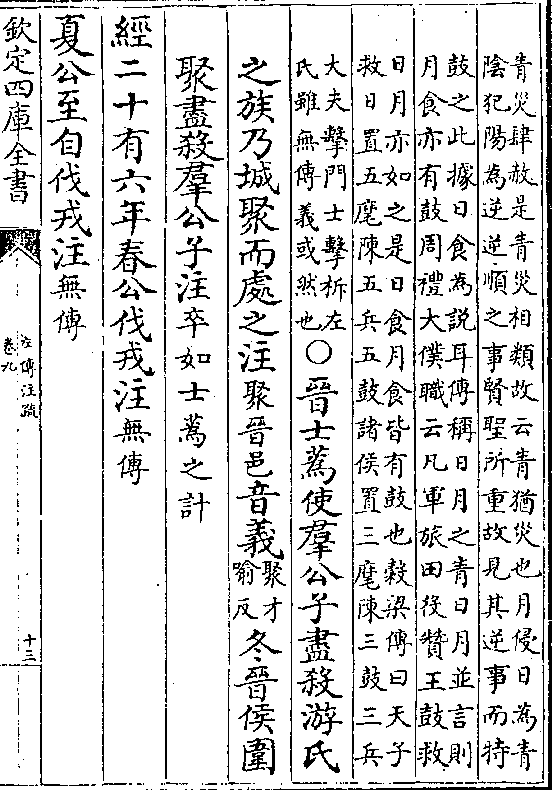 青災肆赦是青災相類故云青猶災也月侵日為青
陰犯陽為逆逆順之事賢聖所重故見其逆事而特
鼓之此據日食為說耳傳稱日月之青日月並言則
月食亦有鼓周禮大僕職云凡軍旅田役贊王鼓救
日月亦如之是日食月食皆有鼓也穀梁傳曰天子
救日置五麾陳五兵五鼓諸侯置三麾陳三鼓三兵
大夫擊門士擊柝左
氏雖無傳義或然也
○晉士蔿使羣公子盡殺游氏
之族乃城聚而處之注聚晉邑音義聚才喻反冬晉侯圍
聚盡殺羣公子注卒如士蔿之計
經二十有六年春公伐戎注無傳
夏公至自伐戎注無傳
欽定四庫全書
左傳注疏
卷九
十三